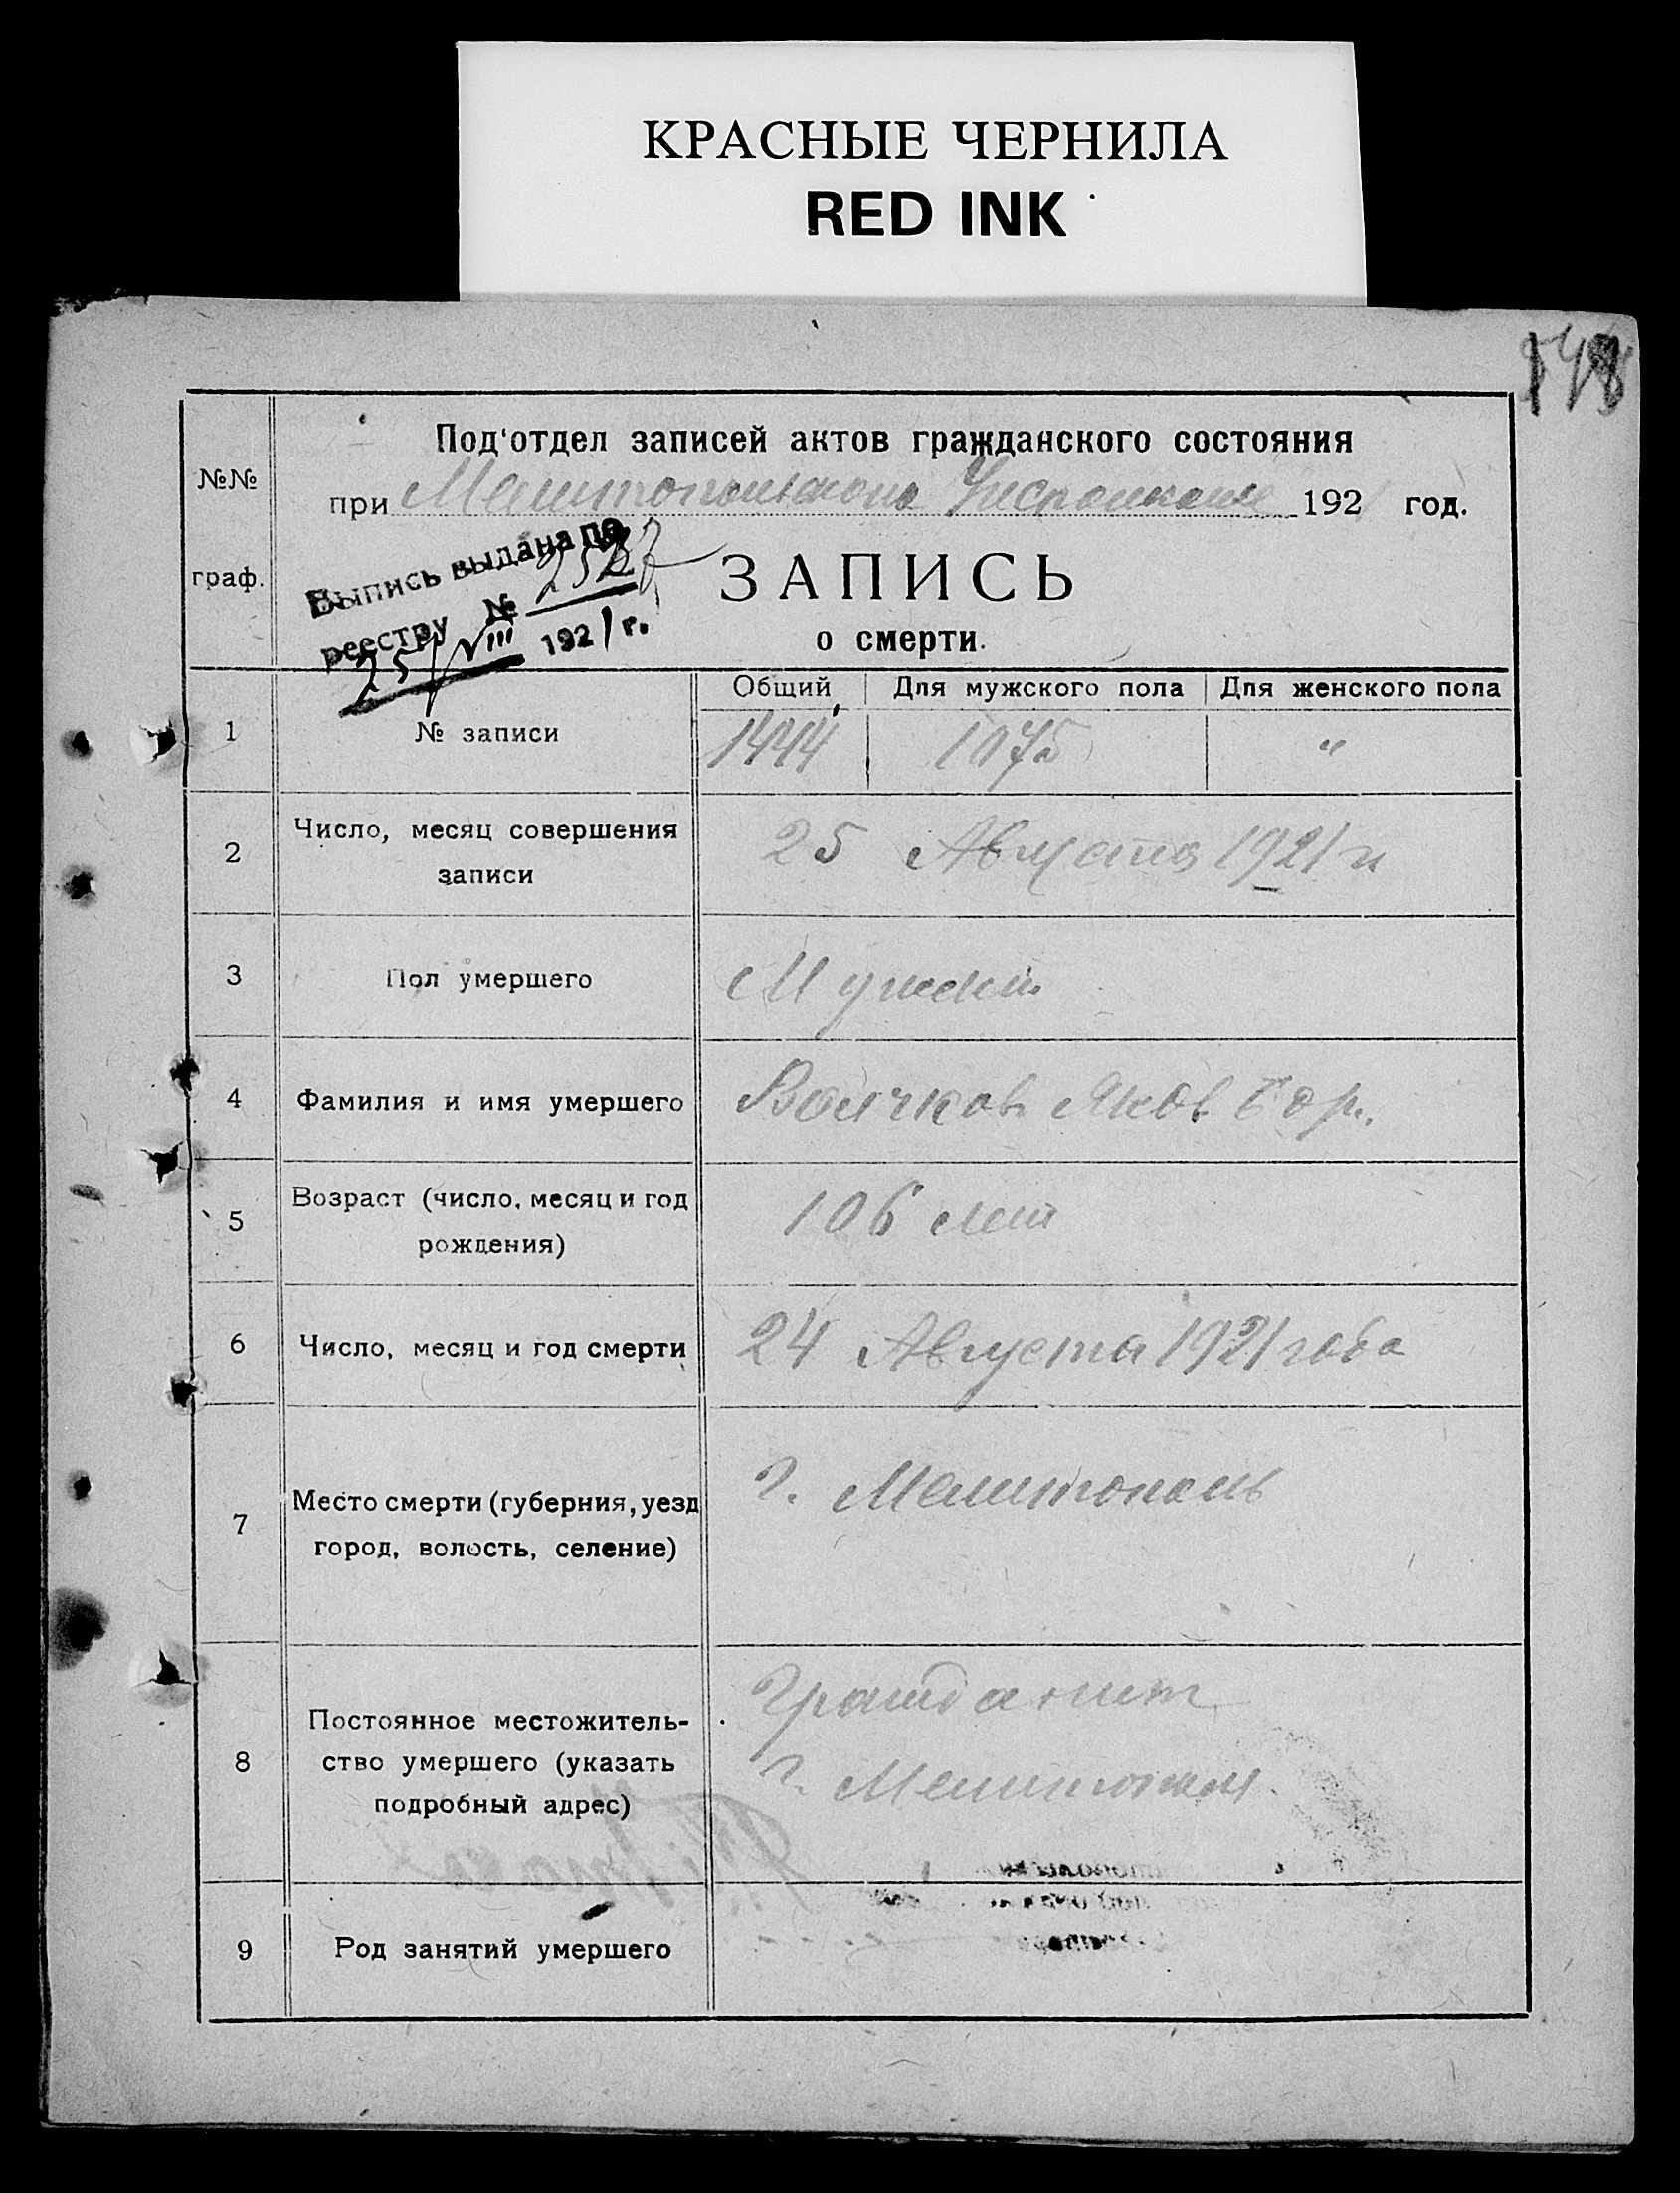 КРАСНЫЕ ЧЕРНИЛА
RED INK
148
№№
граф.
Под'отдел записей актов гражданского состояния
при Мелитопольском 192 год.
Выпись выдана по
реестру № 2527
25/VIII 1921 г.
ЗАПИСЬ
о смерти.
Общий Для мужского пола Для женского пола
1 № записи 1444 1075 "
2 Число, месяц совершения
записи
25 Августа 1921 г
3 Пол умершего Мужской
4 Фамилия и имя умершего Яков
5 Возраст (число, месяц и год
рождения)
106 лет
6 Число, месяц и год смерти 24 Августа 1921 года
7 Место смерти (губерния, уезд
город, волость, селение)
г. Мелитополь
8 Постоянное местожитель-
ство умершего (указать
подробный адрес)
Гражданин
г. Мелитополя
9 Род занятий умершего